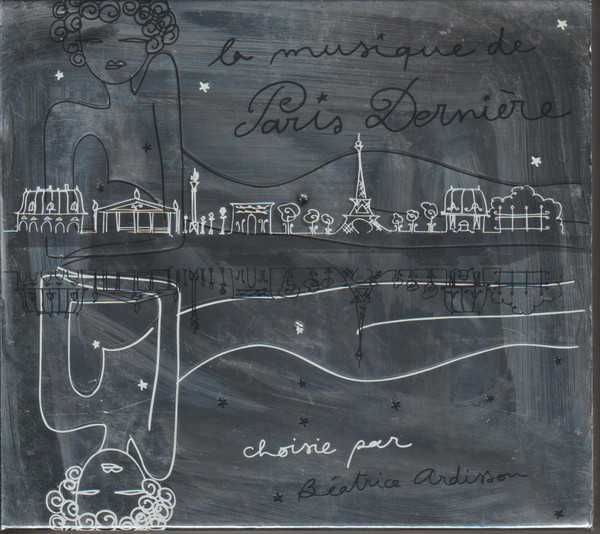 la musique de
Paris Dernière
choisie par
Béatrice Ardisson